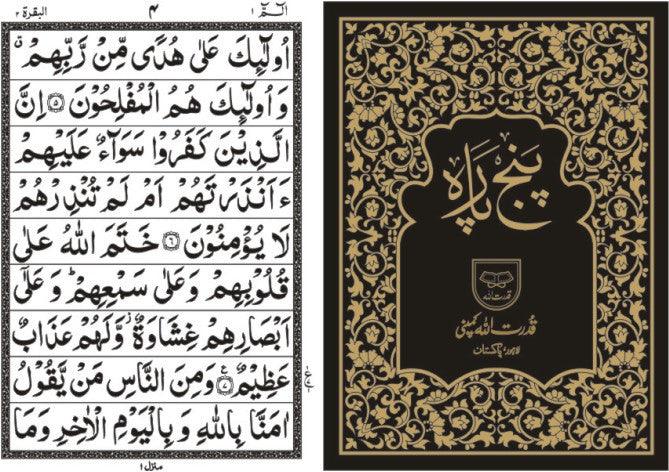 الٓمّٓ ۱
۴
البقرة ۲
اُولٰٓئِكَ عَلٰى هُدًى مِّنْ رَّبِّهِمْ ۙ
وَ اُولٰٓئِكَ هُمُ الْمُفْلِحُوْنَ ﴿۵﴾ اِنَّ
الَّذِيْنَ كَفَرُوْا سَوَآءٌ عَلَيْهِمْ
ءَاَنْذَرْتَهُمْ اَمْ لَمْ تُنْذِرْهُمْ
لَا يُؤْمِنُوْنَ ﴿۶﴾ خَتَمَ اللّٰهُ عَلٰى
قُلُوْبِهِمْ وَ عَلٰى سَمْعِهِمْ ؕ وَ عَلٰٓى
اَبْصَارِهِمْ غِشَاوَةٌ ؗ وَّ لَهُمْ عَذَابٌ
عَظِيْمٌ ﴿۷﴾ وَ مِنَ النَّاسِ مَنْ يَّقُوْلُ
اٰمَنَّا بِاللّٰهِ وَ بِالْيَوْمِ الْاٰخِرِ وَ مَا
منزل ۱
پنج پارہ
قدرت اللہ
قدرت اللہ کمپنی
لاہور، پاکستان